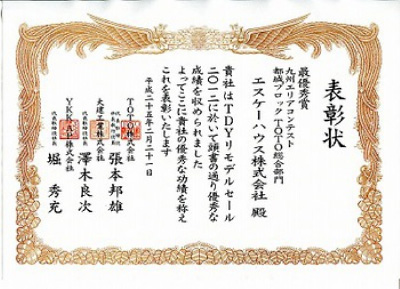 表彰状
最優秀賞
九州エリアコンテスト
都城ブロックTOTO総合部門
エスケーハウス株式会社 殿
貴社はTDYリモデルセール
二〇一二に於いて頭書の通り優秀な
成績を収められました
よってここに貴社の優秀な功績を称え
これを表彰いたします
平成二十五年二月二十一日
TOTO株式会社
代表取締役
社長執行役員
張本邦雄
大建工業株式会社
代表取締役社長
澤木良次
YKKAP株式会社
代表取締役社長
堀秀充